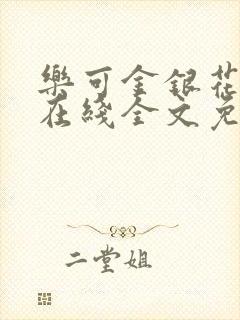 樂可金銀花
在綫全文免
二堂姐